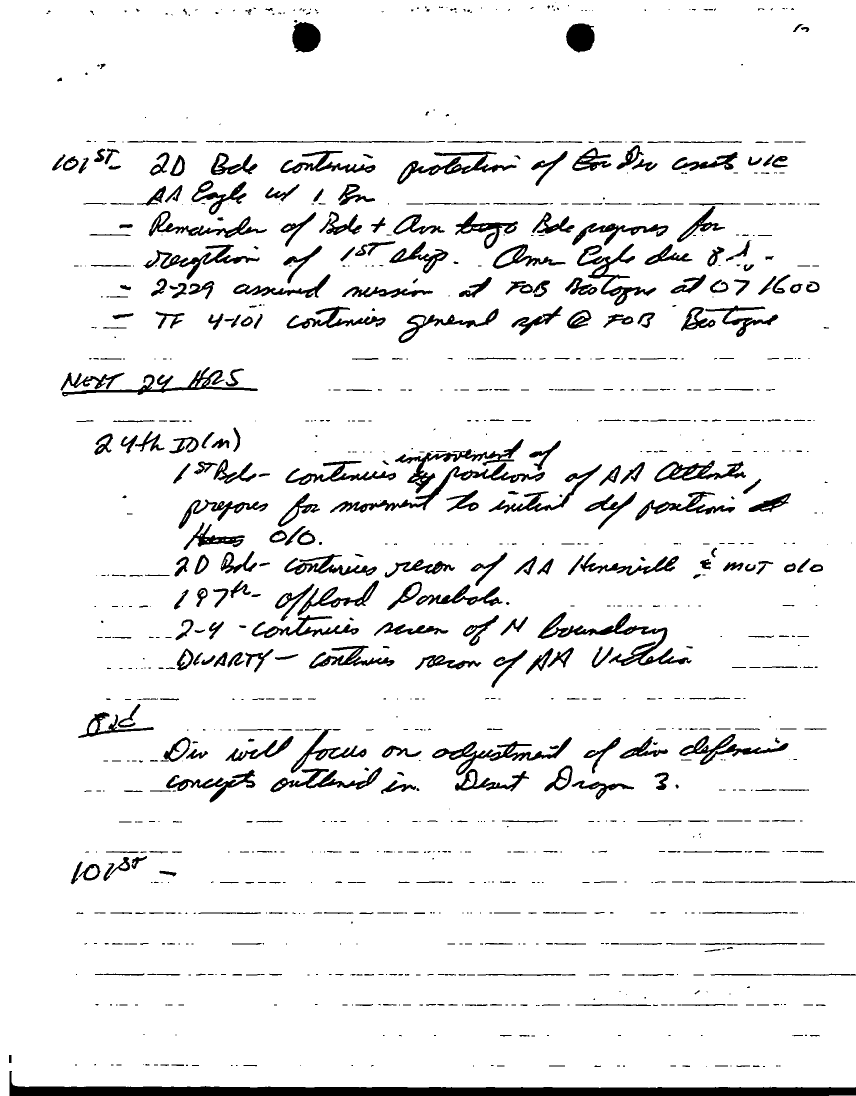 101ST - 2D Bde continues protection of Div assets vic
AA Eagle w/ 1 Bn
- Remainder of Bde + Avn Bde prepares for
reception of 1ST ships. Amer Eagle due 8
- 2-229 assumed mission at FOB Bastogne at 07 1600
- TF 4-101 continues general spt @ FOB Bastogne
NEXT 24 HRS
24th ID(M)
improvement of
1ST Bde - continues positions of AA Atlanta,
prepares for movement to initial def positions
O/O.
2D Bde - continues recon of AA Hinesville & mvt O/O
197th - offload Danebola.
2-4 - continues screen of N boundary
DIVARTY - continues recon of AA Vidalia
82d
Div will focus on adjustment of div defensive
concepts outlined in Desert Dragon 3.
101ST -